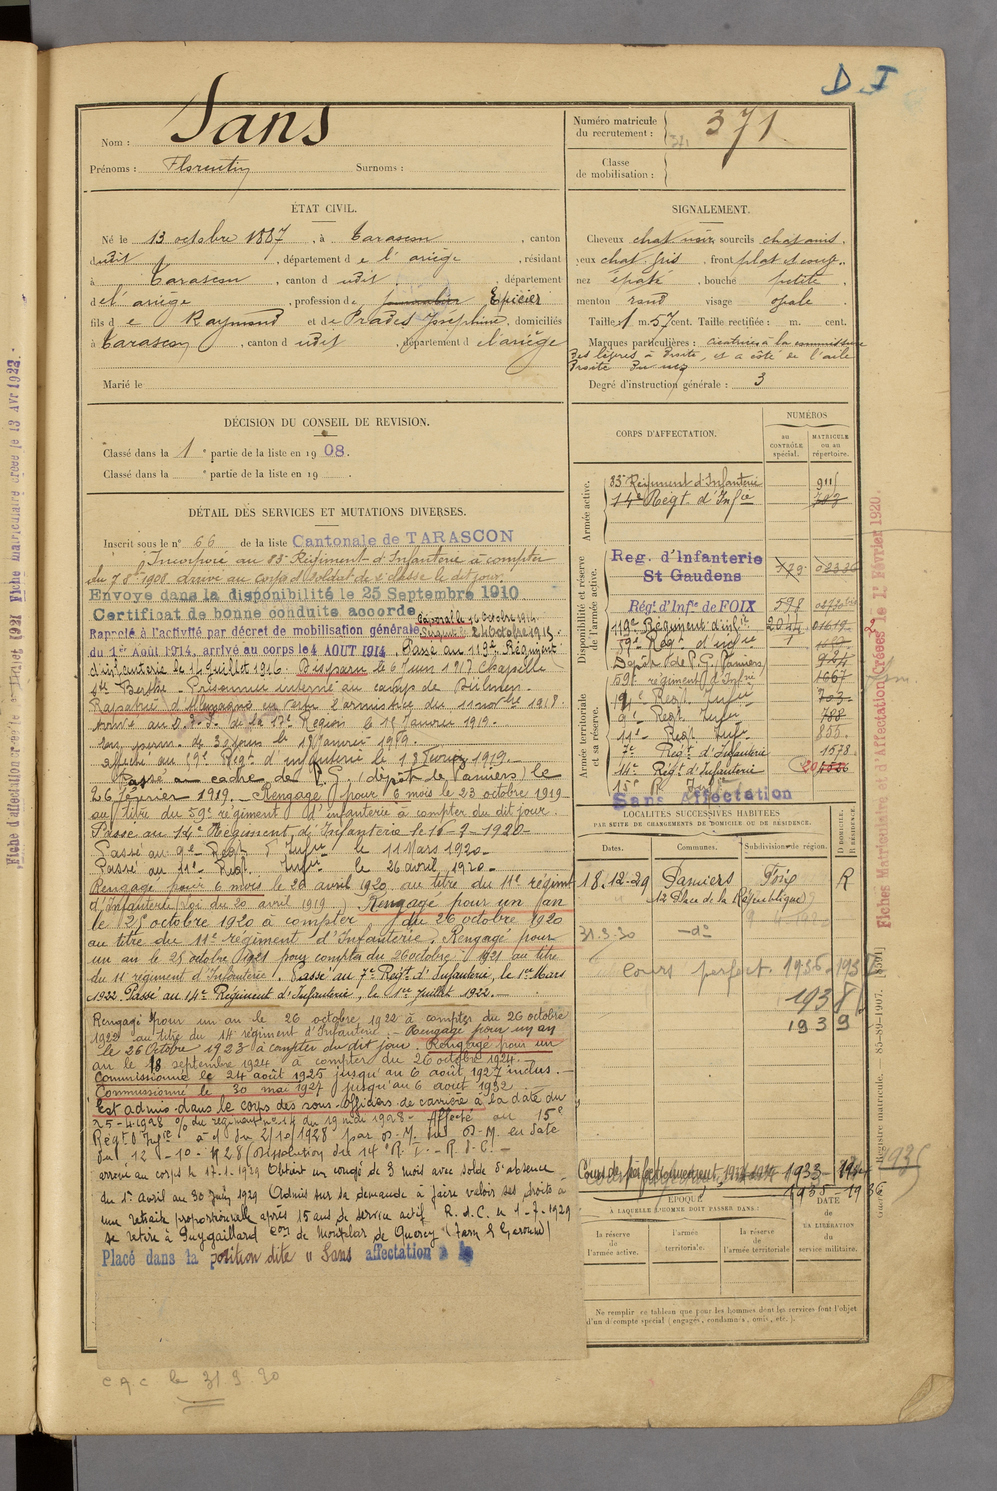 D I
Nom : Sans
Prénoms : Florentin Surnoms :
ÉTAT CIVIL.
Né le 13 octobre 1887, à Tarascon, canton
dudit, département de l'ariège, résidant
à Tarascon, canton dudit, département
de l'ariège, profession de journalier Epicier
fils de Raymond et de Prades Joséphine, domiciliés
à Tarascon, canton dudit, département de l'ariège
Marié le
DÉCISION DU CONSEIL DE REVISION.
Classé dans la 1e partie de la liste en 1908.
Classé dans la e partie de la liste en 19
DÉTAIL DES SERVICES ET MUTATIONS DIVERSES.
Inscrit sous le n° 66 de la liste Cantonale de TARASCON
Incorporé au 83e Régiment d'Infanterie à compter
du 7 8bre 1908 arrivé au corps et soldat de 2e classe le dit jour.
Envoyé dans la disponibilité le 25 Septembre 1910
Certificat de bonne conduite accordé Caporal le 16 octobre 1914
Rappelé à l'activité par décret de mobilisation générale Sergent le 24 octobre 1915.
du 1er Août 1914, arrivé au corps le 4 AOUT 1914. Passé au 119e Régiment
d'infanterie le 14 juillet 1916. Disparu le 6 Juin 1917 Chapelle
Ste Berthe. Prisonnier interné au camp de Dülmen.
Rapatrié d'Allemagne en vertu l'armistice du 11 novbre 1918.
de la 17e Région le 1er Janvier 1919.
de 30 jours le 18 Janvier 1919.
affecté au 59e Regt d'infanterie le 18 Février 1919.
Passé au cadre des P.G. (dépôt de Pamiers) le
26 février 1919. Rengagé pour 6 mois le 23 octobre 1919
au titre du 59e régiment d'infanterie à compter du dit jour.
Passé au 14e Régiment d'Infanterie le 10-2-1920
Passé au 9e Regt d'Infie le 11 Mars 1920
Passé au 11e Regt Infie le 26 avril 1920
Rengagé pour 6 mois le 20 avril 1920 au titre du 11e régiment
d'Infanterie (Loi du 20 avril 1919) Rengagé pour un an
le 25 octobre 1920 à compter du 26 octobre 1920
au titre du 11e régiment d'Infanterie. Rengagé pour
un an le 25 octobre 1921 pour compter du 26 octobre 1921 au titre
du 11e régiment d'Infanterie. Passé au 7e Regt d'Infanterie, le 1er Mars
1922. Passé au 14e Régiment d'Infanterie, le 1er Juillet 1922.
Rengagé pour un an le 26 octobre 1922 à compter du 26 octobre
1922 au titre du 14e régiment d'Infanterie. Rengagé pour un an
le 26 Octobre 1923 à compter du dit jour. Rengagé pour un
an le 18 septembre 1924 à compter du 26 octobre 1924.
Commissionné le 24 août 1925 jusqu'au 6 août 1927 inclus.
Commissionné le 30 mai 1927 jusqu'au 6 août 1932
Est admis dans le corps des sous-officiers de carrière à la date du
25-4-1928 O/ du régiment n° 14 du 19 mai 1928 - Affecté au 15e
Regt d'Infie à d du 2/10/1928 par D.M. en date
du 12-10-1928 (dissolution du 14e R.I. - R.d.C.
arrivé au corps le 17-1-1929 Obtient un congé de 3 mois avec solde d'absence
du 1er avril au 30 juin 1929 Admis sur sa demande à faire valoir ses droits à
une retraite proportionnelle après 15 ans de service actif R.d.C. le 1-7-1929
se retire à Puygaillard Con de Montplar de Quercy (Tarn & Garonne)
Placé dans la position dite " Sans affectation "
C q c le 31 3 30
Numéro matricule du recrutement : 371
Classe de mobilisation :
SIGNALEMENT.
Cheveux chat. noir, sourcils chatains,
yeux chat. gris, front plat et couv.,
nez épaté, bouche petite,
menton rond visage ovale.
Taille 1 m. 57 cent. Taille rectifiée : m. cent.
Marques particulières : cicatrices à la commissure
des lèvres à droite, et à côté de l'aile
droite du nez
Degré d'instruction générale : 3
CORPS D'AFFECTATION.
NUMÉROS
au CONTRÔLE spécial.
MATRICULE ou au répertoire.
Armée active.
83e Régiment d'Infanterie 911
14e Régt d'Infie
Disponibilité et réserve de l'armée active.
Reg. d'Infanterie
St Gaudens
Régt d'Infie de FOIX 598
119e Régiment d'infie 2044 01619
59e Regt d'infie
Dépôt de P.G. Pamiers 924
59e régiment d'Infie 1667
Armée territoriale et sa réserve.
14e Regt Infie 703
9e Regt Infie 788
11e Regt Infie 855.
7e Regt d'Infanterie 1578
14e Regt d'Infanterie
15e R. Infie
Sans Affectation
LOCALITÉS SUCCESSIVES HABITÉES
PAR SUITE DE CHANGEMENTS DE DOMICILE OU DE RÉSIDENCE.
Dates. Communes. Subdivision de région. D DOMICILE. R RÉSIDENCE.
18.12.29 Pamiers Foix R
12 Place de la République
31.3.30 —d°
Cours perfect. 1936-1937
1938
1939
Cours de perfectionnement, 1933
1935-1936
ÉPOQUE
À LAQUELLE L'HOMME DOIT PASSER DANS :
la réserve de l'armée active.
l'armée territoriale.
la réserve de l'armée territoriale
DATE de LA LIBÉRATION du service militaire.
Ne remplir ce tableau que pour les hommes dont les services font l'objet
d'un décompte spécial (engagés, condamnés, omis, etc.).
Fiches Matriculaire et d'Affectation Créées le 1r Février 1920.
Registre matricule. — 85-89-1907. [8691]
Fiche matriculaire créée le 13 Avr 1923.